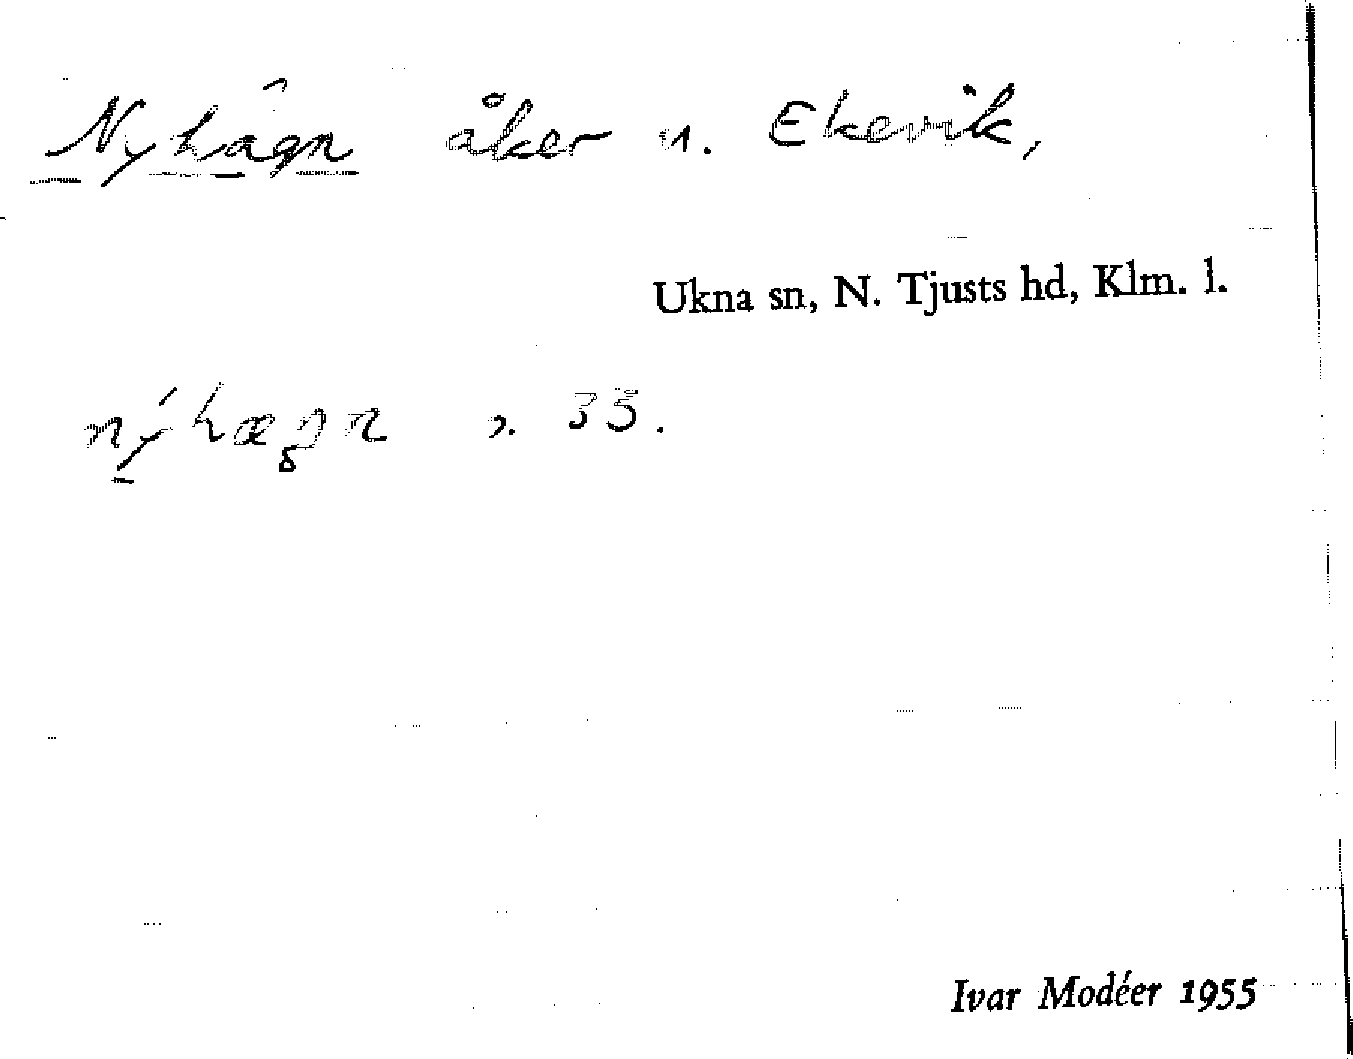 Nyhägn åker u. Ekevik,
Ukna sn, N. Tjusts hd, Klm. l.
nýhægn s. 35.
Ivar Modéer 1955